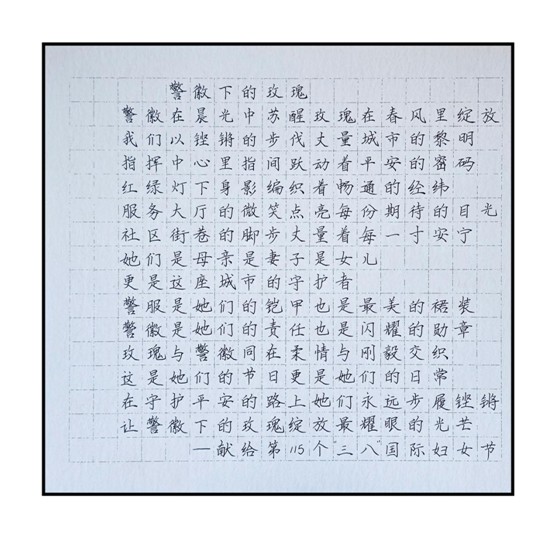 警徽下的玫瑰
警徽在晨光中苏醒玫瑰在春风里绽放
我们以铿锵的步伐丈量城市的黎明
指挥中心里指间跃动着平安的密码
红绿灯下身影编织着畅通的经纬
服务大厅的微笑点亮每份期待的目光
社区街巷的脚步丈量着每一寸安宁
她们是母亲是妻子是女儿
更是这座城市的守护者
警服是她们的铠甲也是最美的裙装
警徽是她们的责任也是闪耀的勋章
玫瑰与警徽同在柔情与刚毅交织
这是她们的节日更是她们的日常
在守护平安的路上她们永远步履铿锵
让警徽下的玫瑰绽放最耀眼的光芒
—献给第115个“三八”国际妇女节